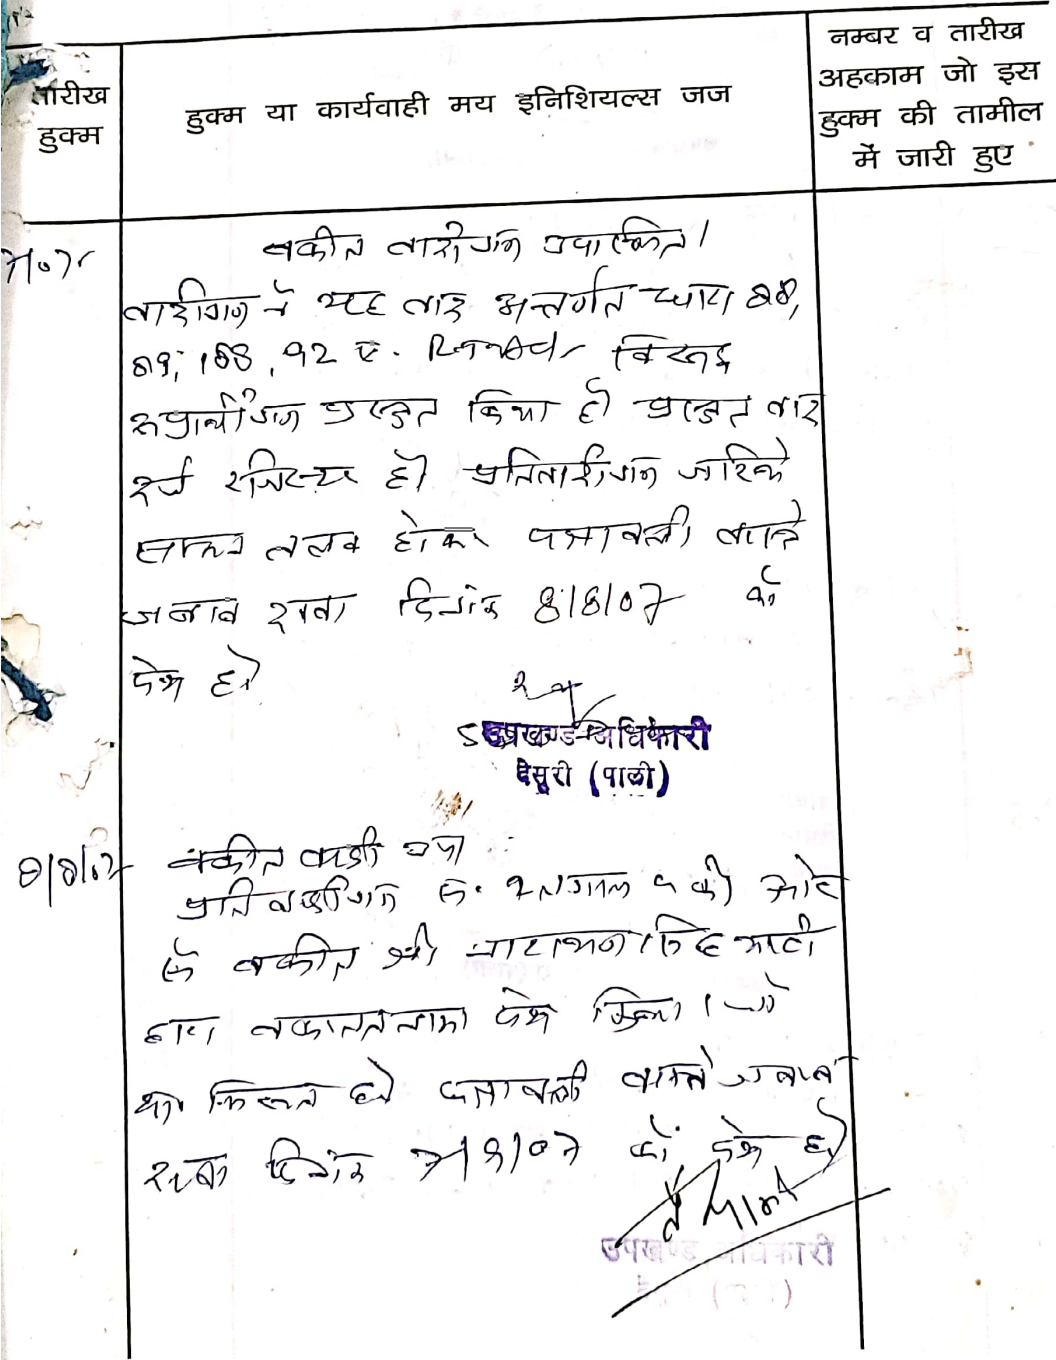 तारीख
हुक्म
हुक्म या कार्यवाही मय इनिशियल्स जज
नम्बर व तारीख
अहकाम जो इस
हुक्म की तामील
में जारी हुए
वकील वादीगण उपस्थित।
वादीगण ने यह वाद अन्तर्गत धारा 88,
89, 188, 92 ए. विरूद्ध
अप्रार्थीगण प्रस्तुत किया है। प्रस्तुत वाद
दर्ज रजिस्टर हो। प्रतिवादीगण जरिये
सम्मन तलब होकर पत्रावली वास्ते
जवाब दावा दिनांक 8/8/07 को
पेश हो।
उपखण्ड अधिकारी
देसूरी (पाली)
8/8/07
वकील वादी उप।
प्रतिवादीगण सं. 5 की ओर
से वकील श्री सिंह भाटी
द्वारा वकालतनामा पेश किया। जो
शा. मिसल हो। पत्रावली वास्ते जवाब
दावा दिनांक 7/9/07 को पेश हो।
उपखण्ड अधिकारी